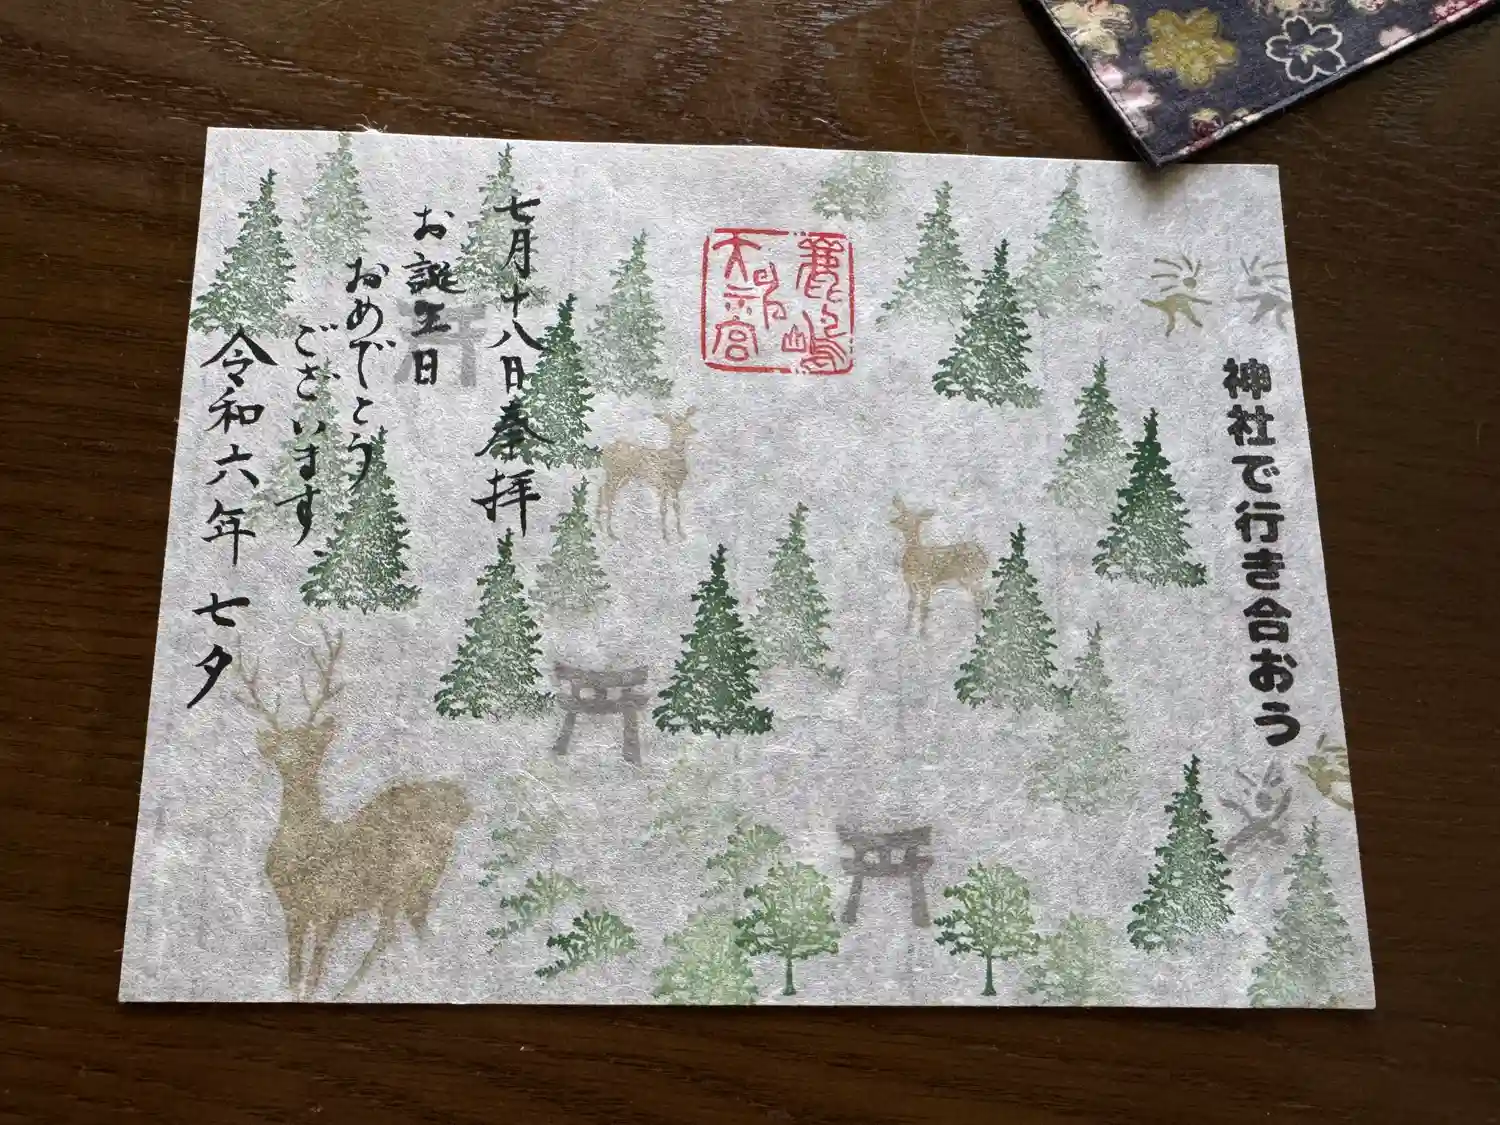 神社で行き合おう
七月十八日奉拝
お誕生日
おめでとう
ございます
令和六年 七夕